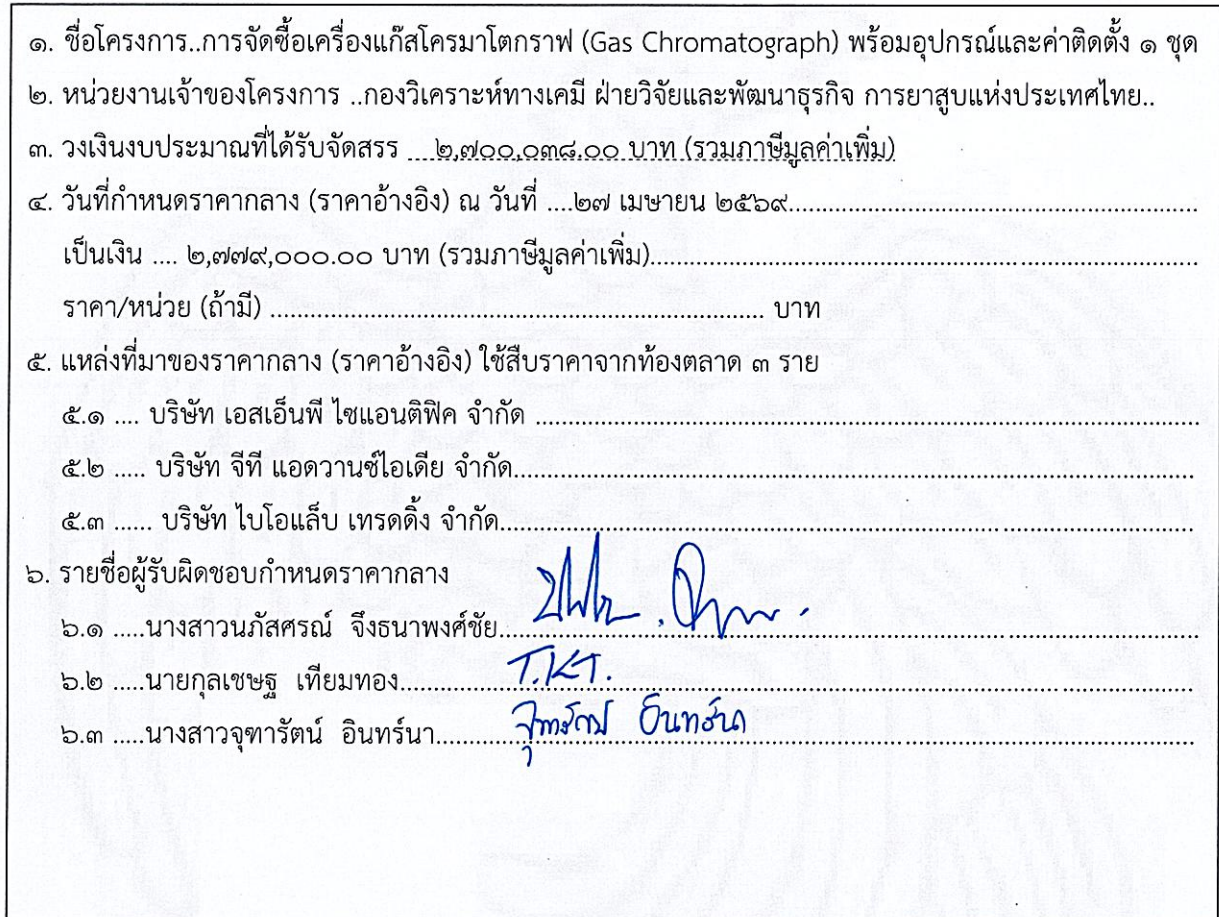 ๑. ชื่อโครงการ..การจัดซื้อเครื่องแก๊สโครมาโตกราฟ (Gas Chromatograph) พร้อมอุปกรณ์และค่าติดตั้ง ๑ ชุด
๒. หน่วยงานเจ้าของโครงการ ..กองวิเคราะห์ทางเคมี ฝ่ายวิจัยและพัฒนาธุรกิจ การยาสูบแห่งประเทศไทย..
๓. วงเงินงบประมาณที่ได้รับจัดสรร ....๒,๗๐๐,๐๓๘.๐๐ บาท (รวมภาษีมูลค่าเพิ่ม)
๔. วันที่กำหนดราคากลาง (ราคาอ้างอิง) ณ วันที่ ....๒๗ เมษายน ๒๕๖๙....
เป็นเงิน .... ๒,๗๗๙,๐๐๐.๐๐ บาท (รวมภาษีมูลค่าเพิ่ม)....
ราคา/หน่วย (ถ้ามี) .... บาท
๕. แหล่งที่มาของราคากลาง (ราคาอ้างอิง) ใช้สืบราคาจากท้องตลาด ๓ ราย
๕.๑ .... บริษัท เอสเอ็นพี ไซแอนติฟิค จำกัด ....
๕.๒ ..... บริษัท จีที แอดวานซ์ไอเดีย จำกัด....
๕.๓ ...... บริษัท ไบโอแล็บ เทรดดิ้ง จำกัด....
๖. รายชื่อผู้รับผิดชอบกำหนดราคากลาง
๖.๑ .....นางสาวนภัสศรณ์ จึงธนาพงศ์ชัย....
๖.๒ .....นายกุลเชษฐ เทียมทอง.... T.KT.
๖.๓ .....นางสาวจุฑารัตน์ อินทร์นา.... จุฑารัตน์ อินทร์นา